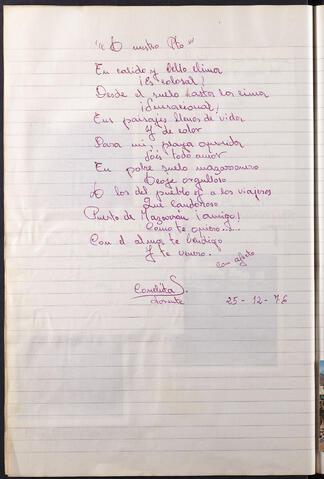 "A nuestro Pto"
En calido y bello clima
¡Es colosal!
Desde el suelo hasta la cima
¡Sensacional!
Em paisajes llenos de vida
Y de color
Para mi, playa querida
Sois todo amor
En pobre suelo mazarronero
Dease orgulloso
A los del pueblo y a los viajeros
Que candoroso
Puerto de Mazarrón ¡amigo!
Como te quiero.....
Con el alma te bendigo
Y te venero.
Con afecto
Candita S.
25-12-76